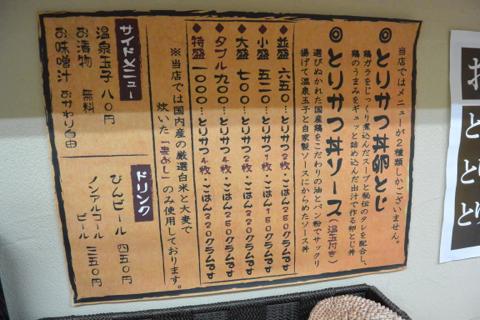 当店ではメニューが2種類しかございません。
◎とりかつ丼卵とじ
鶏ガラをじっくり煮込んだスープと秘伝のタレを配合し、
鶏のうまみをギュッと詰め込んだ出汁で作る卵とじ丼
◎とりかつ丼ソース(温玉付き)
選びぬかれた国産鶏をこだわりの油とパン粉でサックリ
揚げて温泉玉子と自家製ソースにからめたソース丼
◆並盛 六五〇…とりかつ2枚・ごはん250グラム
◆小盛 五二〇…とりかつ1枚・ごはん150グラム
◆大盛 七〇〇…とりかつ2枚・ごはん350グラム
◆ダブル 九〇〇…とりかつ4枚・ごはん250グラム
◆特盛 一〇〇〇…とりかつ4枚・ごはん350グラム
※当店では国内産の厳選白米と大麦で
炊いた「麦めし」のみ使用しております。
サイドメニュー
温泉玉子 八〇円
お漬物 無料
お味噌汁 おかわり自由
ドリンク
びんビール 四五〇円
ノンアルコール
ビール 三五〇円
と
と